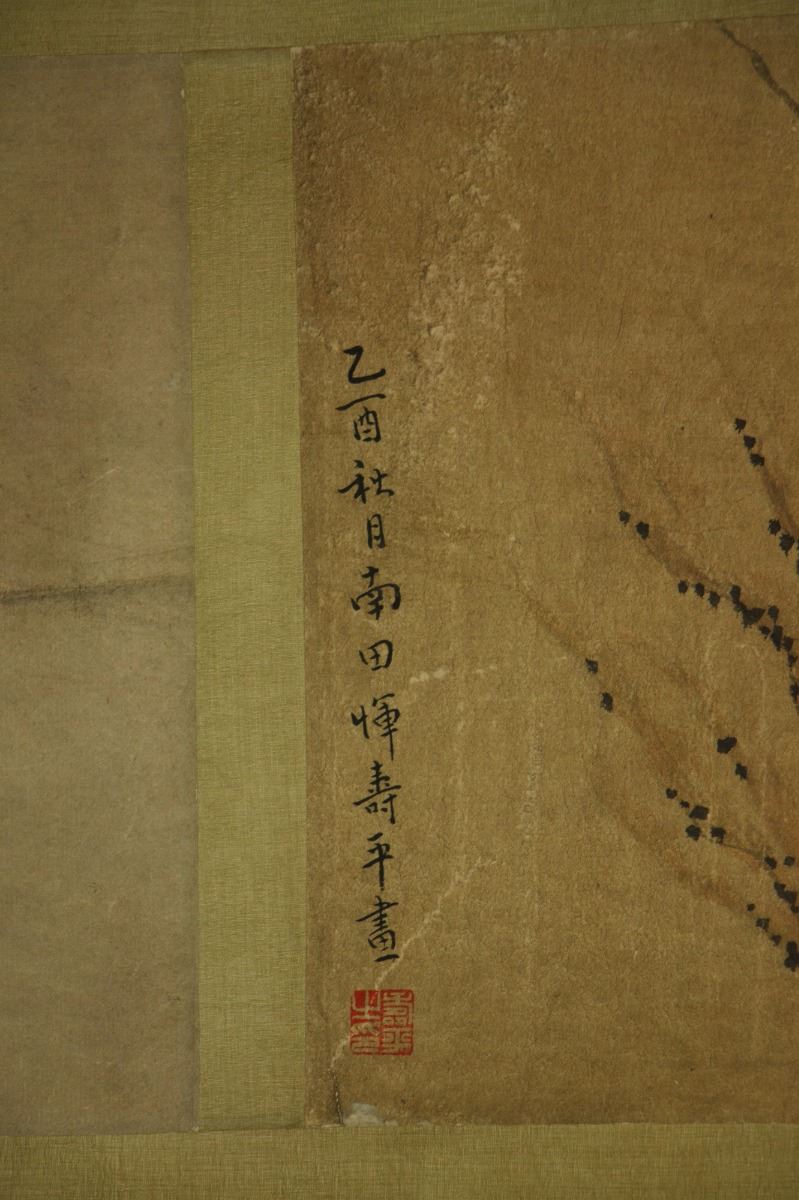 乙酉秋月南田惲壽平畫